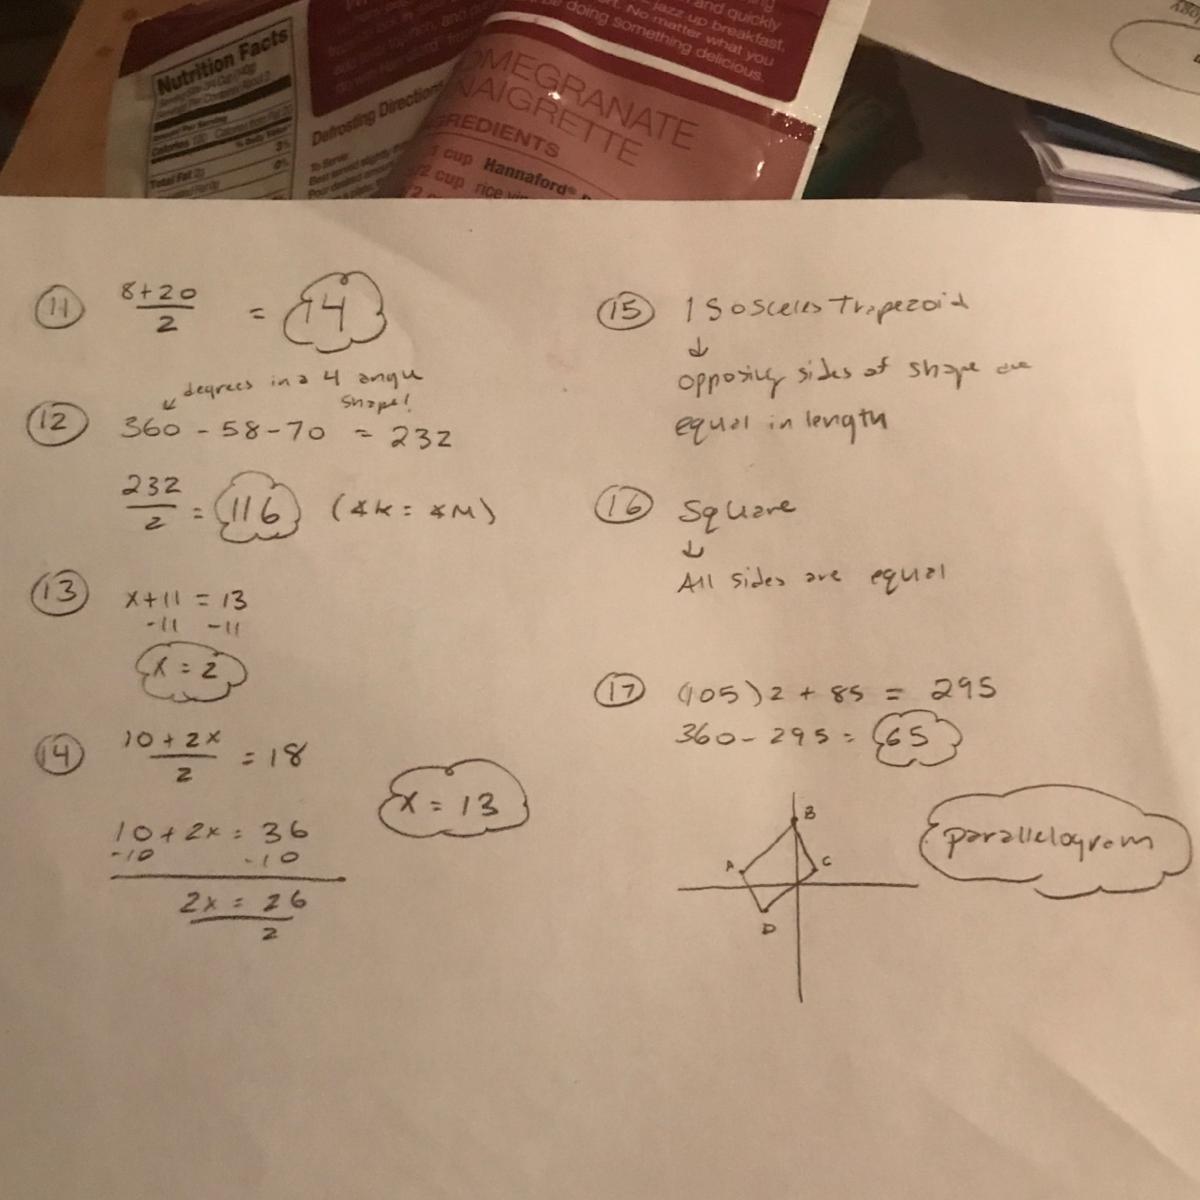 and quickly
jazz up breakfast,
No matter what you
be doing something delicious.
Nutrition Facts
Defrosting Directions
To Serve:
Total Fat 2g
3%
0%
OMEGRANATE
NAIGRETTE
GREDIENTS
1 cup Hannaford®
1/2 cup rice
11 8+20 / 2 = 14
degrees in a 4 angle
shape!
12 360 - 58 - 70 = 232
232 / 2 = 116 (∡K = ∡M)
13 x+11 = 13
-11 -11
x = 2
14 10 + 2x / 2 = 18
x = 13
10 + 2x = 36
-10 -10
2x = 26
2
15 Isosceles Trapezoid
↓
opposing sides of shape are
equal in length
16 Square
↓
All sides are equal
17 (105)2 + 85 = 295
360 - 295 = 65
B
A
C
D
parallelogram